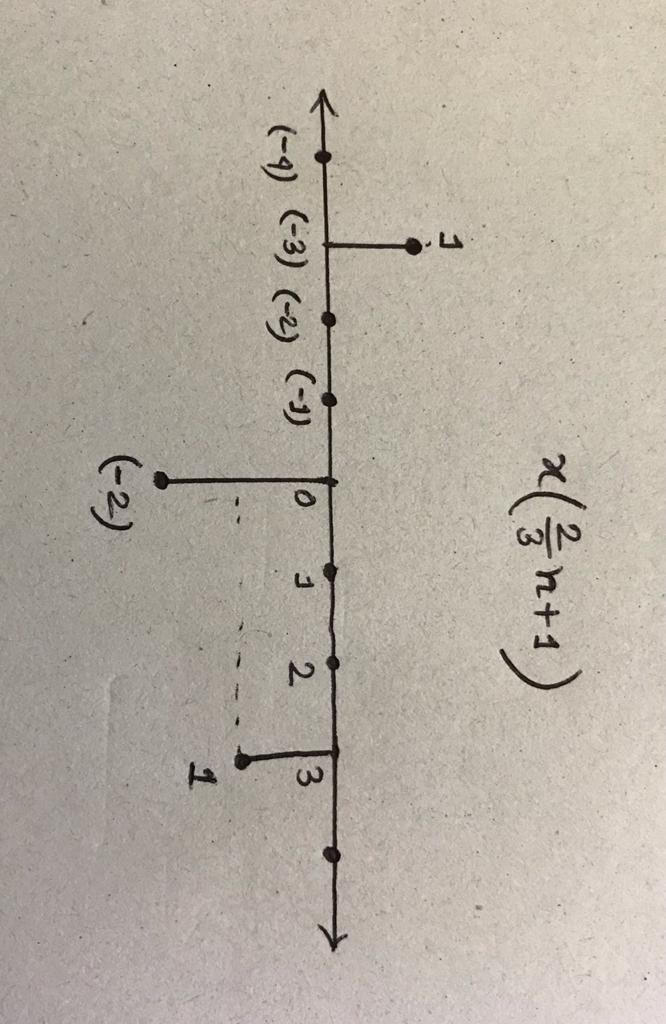 x(2/3 n+1)
1
(-4) (-3) (-2) (-1) 0 1 2 3
1
(-2)